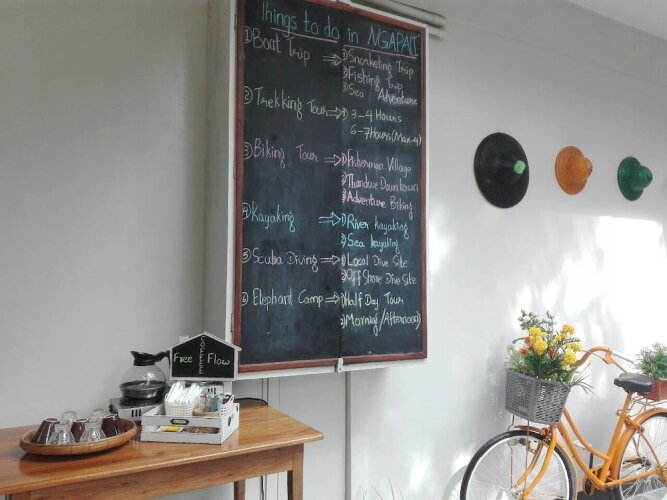 Things to do in NGAPALI
① Boat Trip ⇒ ① Snorkeling Trip
② Fishing Trip
③ Sea Adventure
② Trekking Tour ⇒ ① 3-4 Hours
6-7 Hours (Max-4)
③ Biking Tour ⇒ ① Fisherman Village
② Thandwe Downtown
③ Adventure Biking
④ Kayaking ⇒ ① River kayaking
② Sea kayaking
⑤ Scuba Diving ⇒ ① Local Dive Site
② Off Shore Dive Site
⑥ Elephant Camp ⇒ ① Half Day Tour
② (Morning/Afternoon)
COFFEE
Free Flow